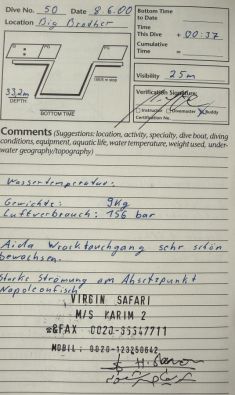 Dive No. 50 Date 8.6.00
Location Big Brother
Bottom Time
to Date
Time
This Dive + 00:37
Cumulative
Time =
PG PG
33,2m
DEPTH
BOTTOM TIME
Visibility 25m
Verification Signature
Instructor Divemaster x Buddy
Certification No.
Comments (Suggestions: location, activity, specialty, dive boat, diving
conditions, equipment, aquatic life, water temperature, weight used, under-
water geography/topography)
Wassertemperatur:
Gewichte: 9kg
Luftverbrauch: 156 bar
Aida Wracktauchgang sehr schön
bewachsen.
Starke Strömung am Absetzpunkt
Napoleonfisch
VIRGIN SAFARI
M/S KARIM 2
☎&FAX 0020-65547711
MOBIL: 0020-123250642